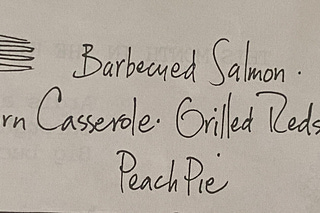 Barbecued Salmon.
rn Casserole. Grilled Reds
Peach Pie